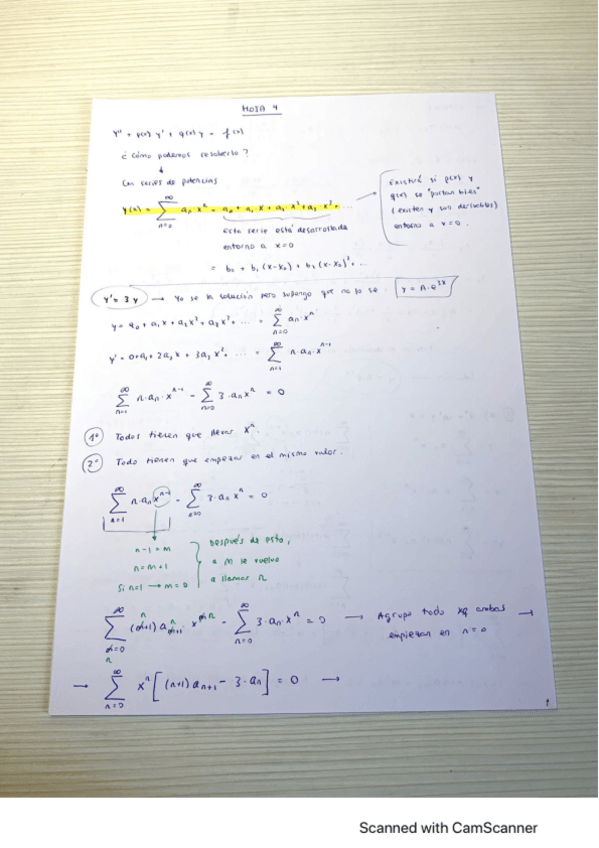 HOJA 4
y'' + p(x) y' + q(x) y = f(x)
¿ Cómo podemos resolverlo ?
↓
Con series de potencias
y(x) = ∑_{n=0}^{∞} a_n · x^n = a_0 + a_1 · x + a_2 · x^2 + a_3 · x^3 + ...
Existirá si p(x) y
q(x) se "portan bien"
(existen y son derivables)
entorno a x=0.
Esta serie está desarrollada
entorno a x=0
= b_0 + b_1 (x-x_0) + b_2 (x-x_0)^2 + ...
y' = 3y → Yo se la solución pero supongo que no lo se. y = A·e^{3x}
y = a_0 + a_1 x + a_2 x^2 + a_3 x^3 + ... = ∑_{n=0}^{∞} a_n · x^n
y' = 0 + a_1 + 2a_2 x + 3a_3 x^2 + ... = ∑_{n=1}^{∞} n · a_n · x^{n-1}
∑_{n=1}^{∞} n · a_n · x^{n-1} - ∑_{n=0}^{∞} 3 · a_n x^n = 0
1º Todos tienen que llevar x^n
2º Todo tienen que empezar en el mismo valor.
∑_{n=1}^{∞} n · a_n x^{n-1} - ∑_{n=0}^{∞} 3 · a_n x^n = 0
n-1 = m
n = m+1
Si n=1 → m=0
Después de esto,
a m le vuelvo
a llamar n
∑_{n=0}^{∞} (n+1) a_{n+1} · x^n - ∑_{n=0}^{∞} 3 · a_n · x^n = 0 → Agrupo todo xq ambas →
empiezan en n=0
→ ∑_{n=0}^{∞} x^n [(n+1) a_{n+1} - 3 · a_n] = 0 →
1
Scanned with CamScanner